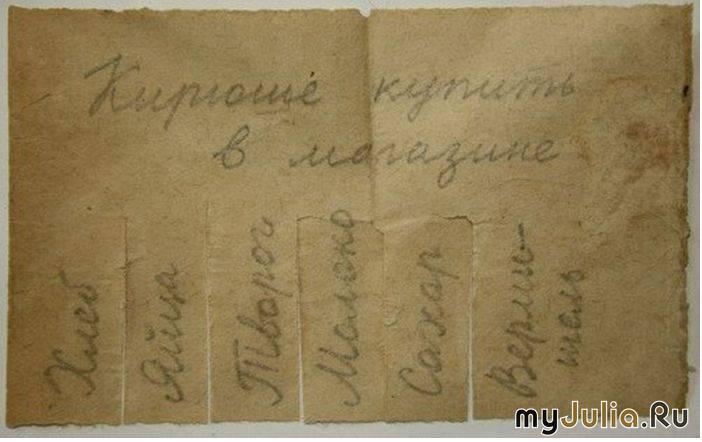 Кирюше купить
в магазине
Хлеб
Яйца
Творог
Молоко
Сахар
Верми-
шель
myJulia.Ru